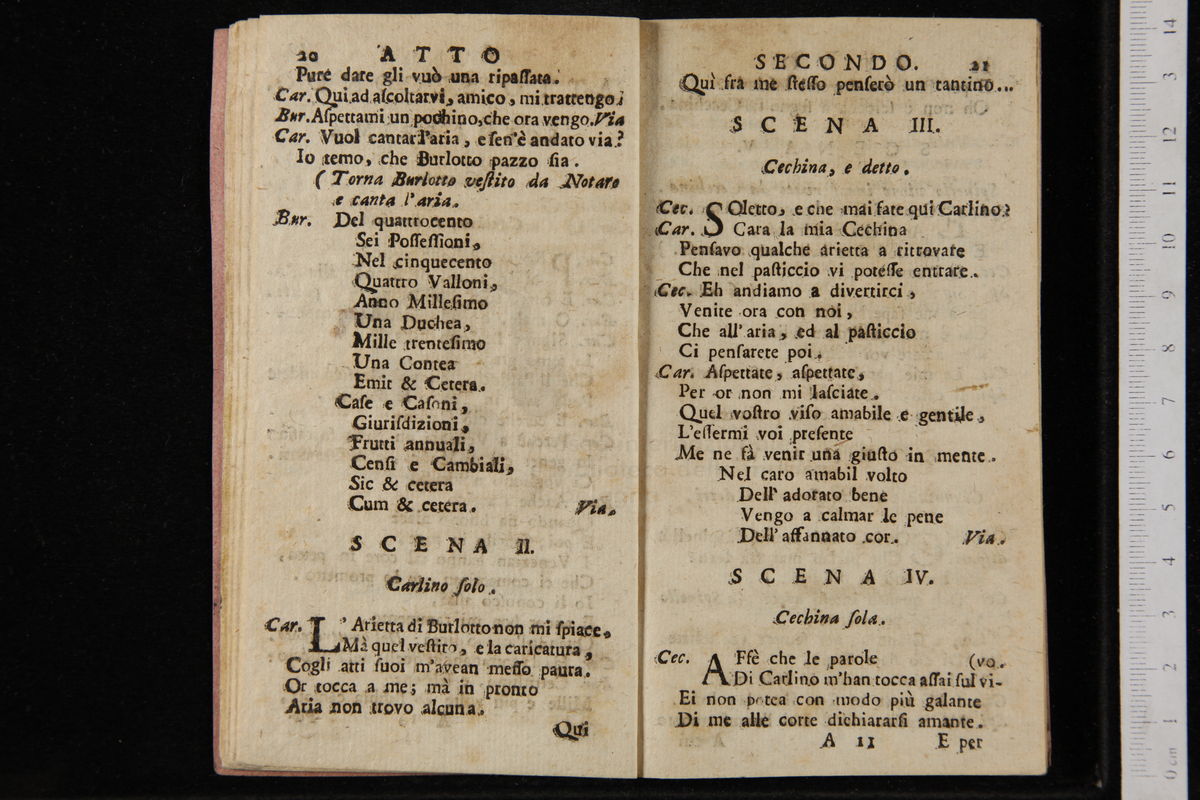 20 ATTO
Pure dare gli vuò una ripaſſata.
Car. Qui ad aſcoltarvi, amico, mi trattengo.
Bur. Aſpettami un pochino, che ora vengo. Via
Car. Vuol cantar l'aria, e ſen'è andato via?
Io temo, che Burlotto pazzo ſia.
( Torna Burlotto veſtito da Notaro
e canta l'aria.
Bur. Del quattrocento
Sei Poſſeſſioni,
Nel cinquecento
Quattro Valloni,
Anno Milleſimo
Una Duchea,
Mille trenteſimo
Una Contea
Emit & Cetera.
Caſe e Caſoni,
Giurisdizioni,
Frutti annuali,
Cenſi e Cambiali,
Sic & cetera
Cum & cetera. Via.
SCENA II.
Carlino ſolo.
Car. L'Arietta di Burlotto non mi ſpiace,
Mà quel veſtito, e la caricatura,
Cogli atti ſuoi m'avean meſſo paura.
Or tocca a me; mà in pronto
Aria non trovo alcuna.
Quì
SECONDO. 21
Quì fra me ſteſſo penſerò un tantino...
SCENA III.
Cechina, e detto.
Cec. SOletto, e che mai fate quì Carlino?
Car. Cara la mia Cechina
Penſavo qualche arietta a ritrovare
Che nel paſticcio vi poteſſe entrare.
Cec. Eh andiamo a divertirci,
Venite ora con noi,
Che all'aria, ed al paſticcio
Ci penſarete poi.
Car. Aſpettate, aſpettate,
Per or non mi laſciate.
Quel voſtro viſo amabile e gentile,
L'eſſermi voi preſente
Me ne fà venir una giuſto in mente.
Nel caro amabil volto
Dell' adorato bene
Vengo a calmar le pene
Dell' affannato cor. Via.
SCENA IV.
Cechina ſola.
Cec. AFfè che le parole (vo.
Di Carlino m'han tocca aſſai ſul vi-
Ei non potea con modo più galante
Di me alle corte dichiararſi amante.
A 11 E per
14
13
12
11
10
9
8
7
6
5
4
3
2
1
0 cm